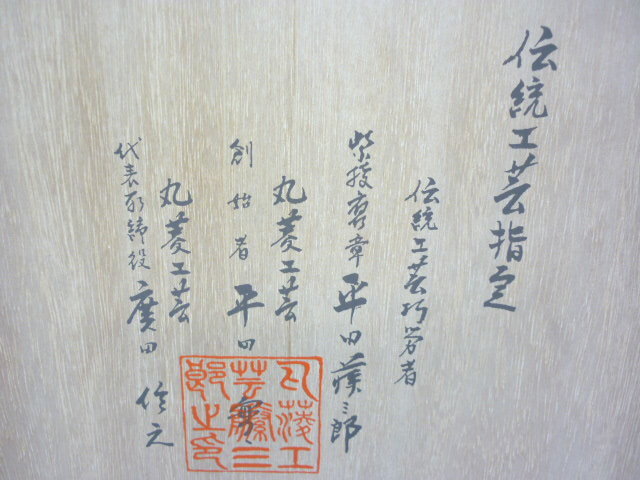 伝統工芸指定
伝統工芸功労者
紫授褒章 平田 三郎
丸菱工芸
創始者 平田
丸菱工芸
代表取締役 廣田 信元
丸菱工
芸 三
郎之印